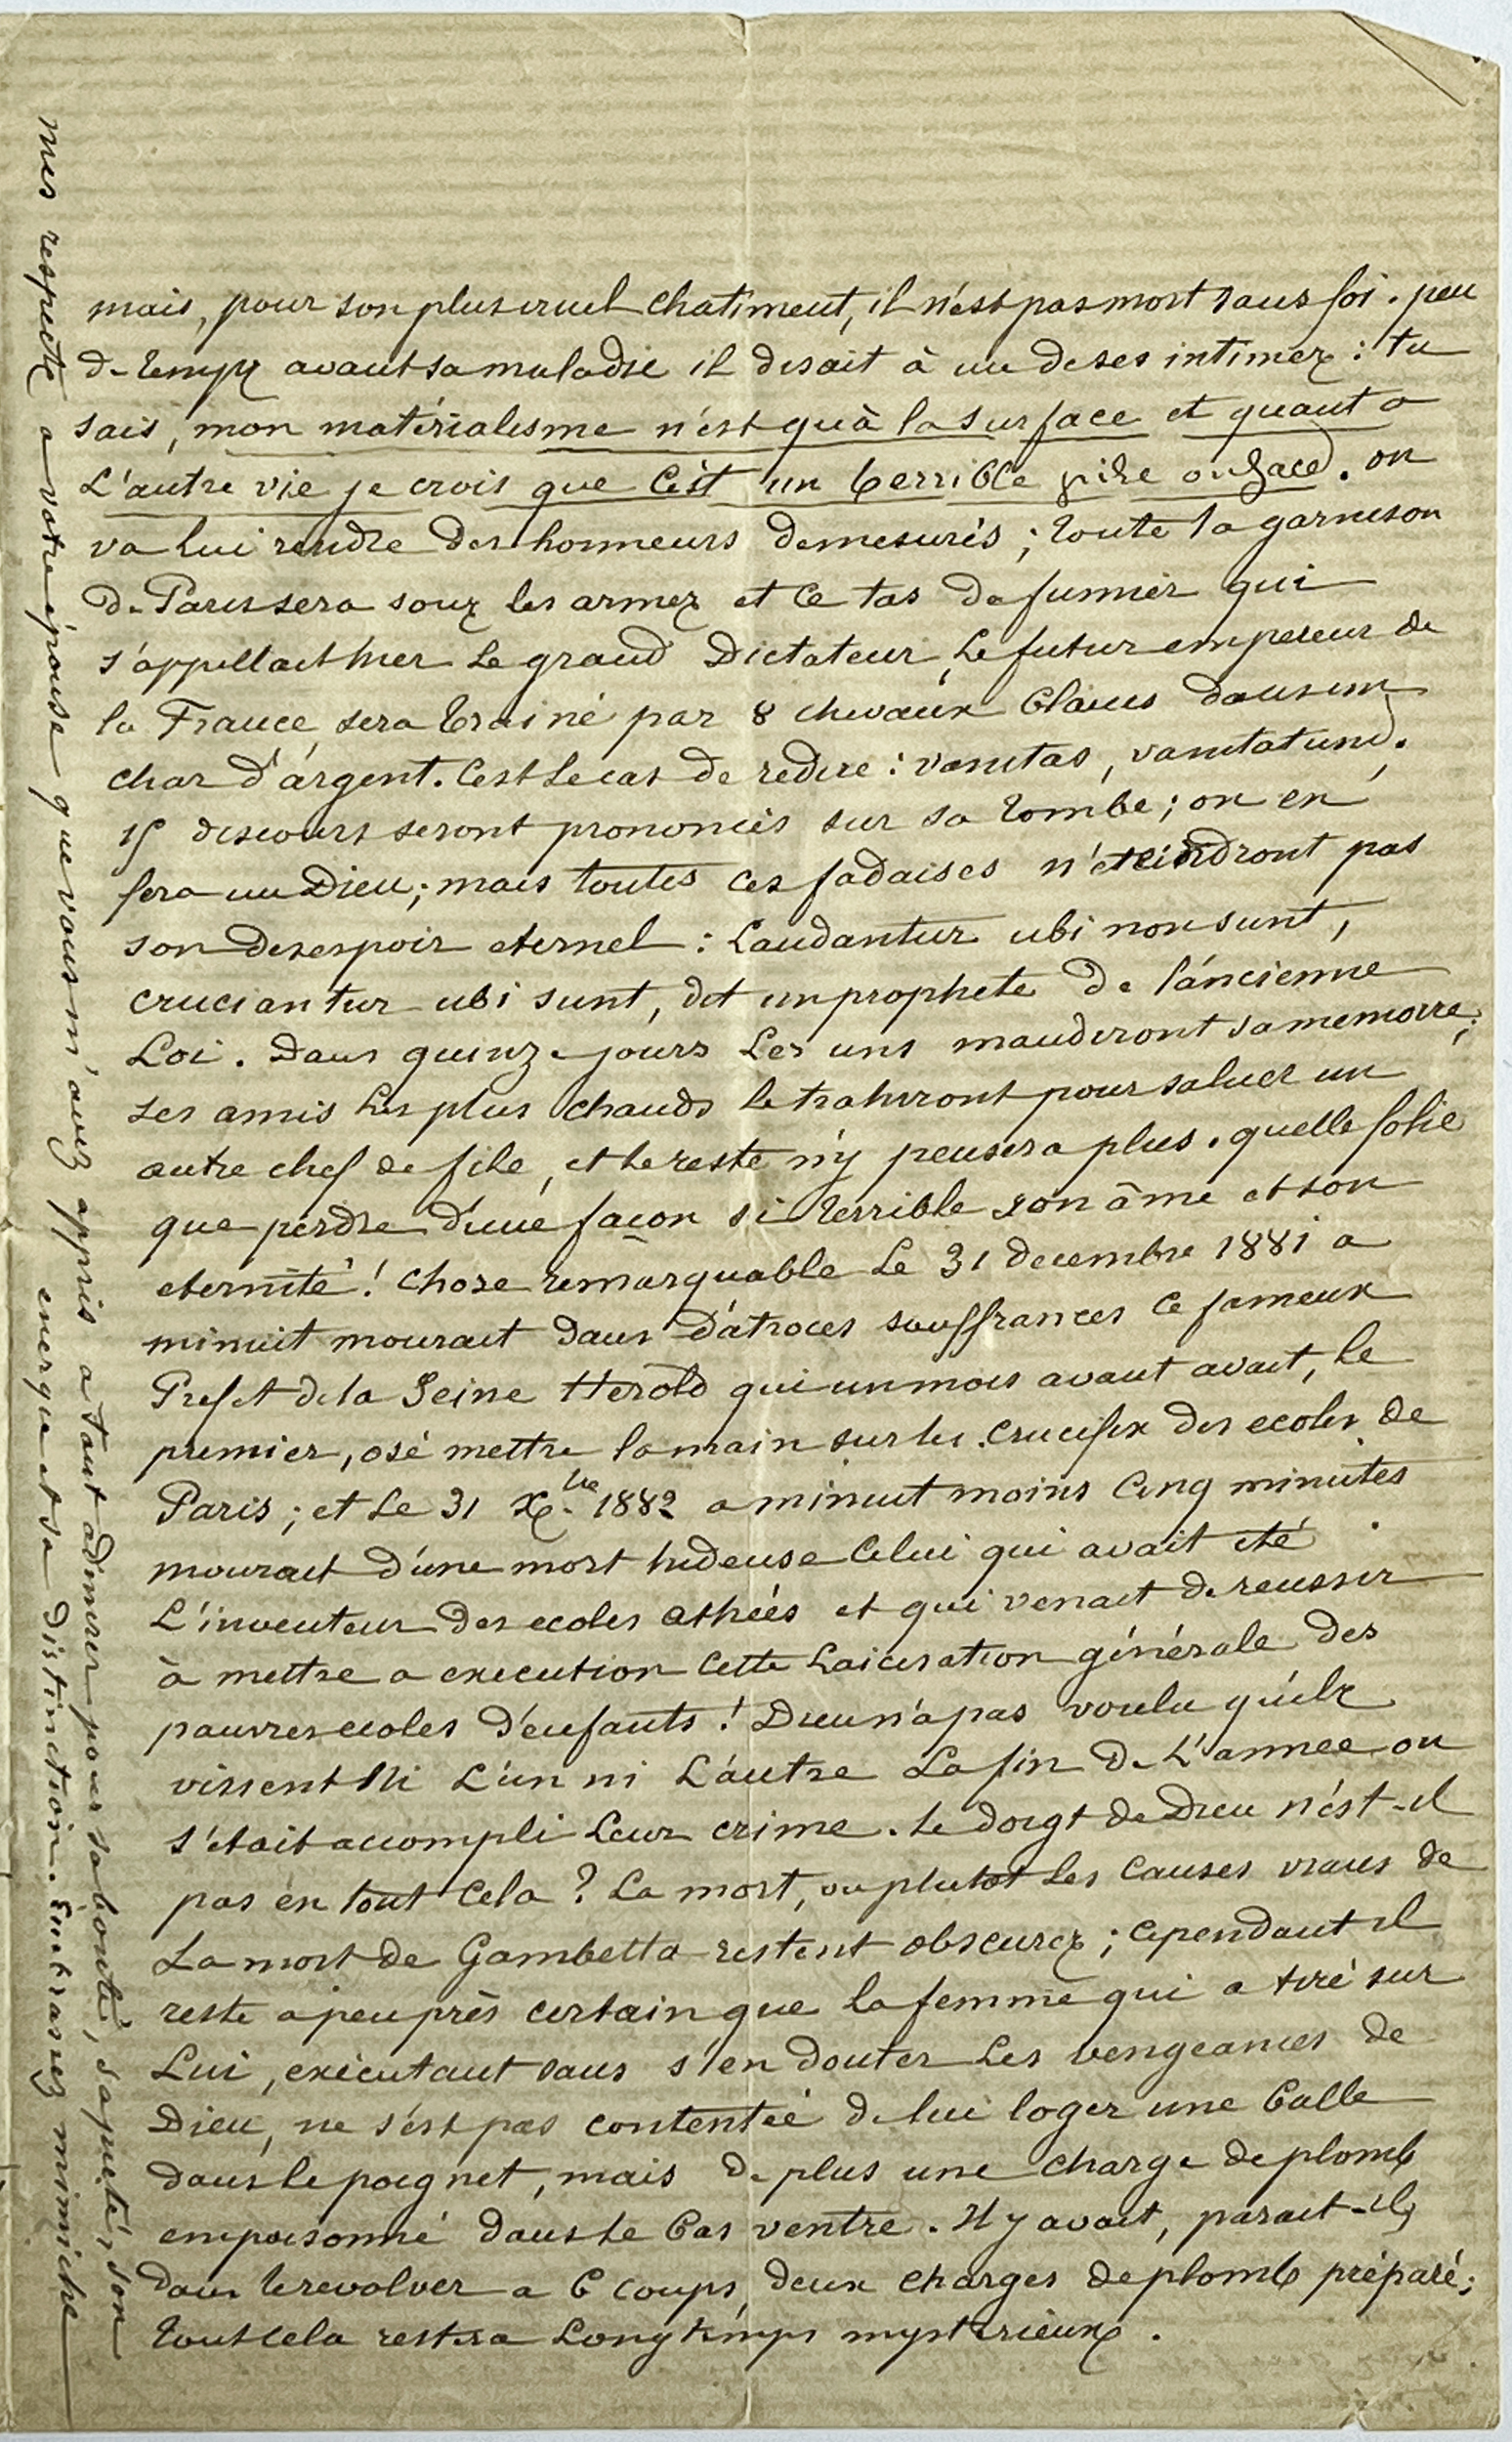 mais, pour son plus cruel chatiment, il n'est pas mort sans foi. peu
de temps avant sa maladie il disait à un de ses intimes : tu
sais, mon matérialisme n'est qu'à la surface et quant a
L'autre vie je crois que c'est un terrible pile ou face. on
va lui rendre des honneurs demesurés ; toute la garnison
de Paris sera sous les armes et ce tas de fumier qui
s'appellait hier le grand Dictateur, Le futur empereur de
la France, sera trainé par 8 chevaux blancs dans un
char d'argent. C'est le cas de redire : vanitas, vanitatum.
15 discours seront prononcés sur sa tombe ; on en
fera un Dieu ; mais toutes ces fadaises n'eteindront pas
son desespoir eternel : Laudantur ubi non sunt,
cruciantur ubi sunt, dit un prophete de l'ancienne
Loi. Dans quinze jours Les uns maudiront sa memoire ;
ses amis les plus chauds le trahiront pour saluer un
autre chef de file, et le reste n'y pensera plus. quelle folie
que perdre d'une façon si terrible son âme et son
eternité ! chose remarquable Le 31 decembre 1881 a
minuit mourait dans d'atroces souffrances ce fameux
Prefet de la Seine Herold qui un mois avant avait, le
premier, osé mettre la main sur les crucifix des ecoles de
Paris ; et le 31 Xbre 1882 a minuit moins cinq minutes
mourait d'une mort hideuse celui qui avait eté
L'inventeur des ecoles athées et qui venait de reussir
à mettre a execution cette laicisation générale des
pauvres ecoles d'enfants ! Dieu n'a pas voulu qu'ils
vissent ni L'un ni L'autre La fin de L'annee ou
s'etait accompli Leur crime. Le doigt de Dieu n'est-il
pas en tout cela ? La mort, ou plutot les causes vraies de
La mort de Gambetta restent obscures ; cependant il
reste a peu près certain que la femme qui a tiré sur
Lui, exécutant sans s'en douter Les vengeances de
Dieu, ne s'est pas contentée de lui loger une balle
dans le poignet, mais de plus une charge de plomb
empoisonné dans le bas ventre. Il y avait, parait-il,
dans le revolver a 6 coups, deux charges de plomb préparé ;
tout cela restera Longtemps mysterieux.
mes respects a votre épouse que vous m'avez appris a tant admirer pour sa bonté, sa pieté, son
energie et sa distinction. Embrassez mimiche